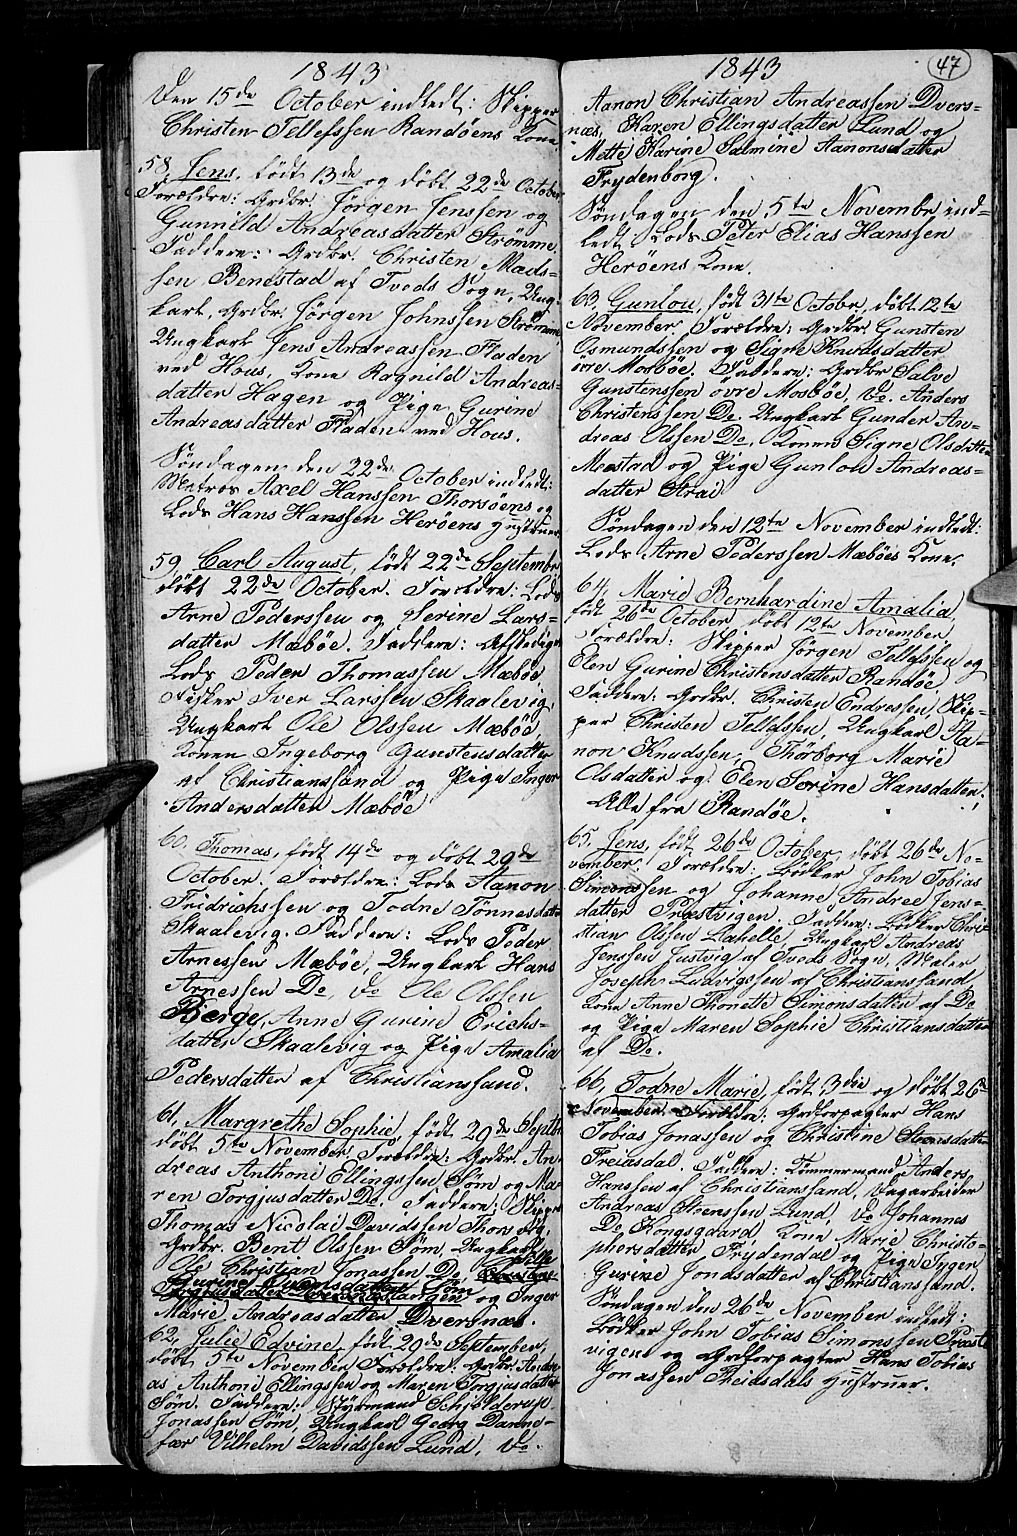 1843
Den 15de October indledt: Skipper
Christen Tellefssen Randøens Kone
58, Jens, født 13de og døbt 22de October
Forældre: Grdbr. Jørgen Jenssen og
Gunnild Andreasdatter Strømme
Faddere: Grdbr. Christen Mads-
sen Benestad af Tveds Sogn, Ung-
karl, Grdbr. Jørgen Johnssen Strømme,
Ungkarl Jens Andreassen Fladen
ved Hous, Kone Ragnild Andreas-
datter Hagen og Pige Gurine
Andreasdatter Fladen ved Hous.
Søndagen den 22de October indledt:
Matros Axel Hanssen Thorsøens og
Lods Hans Hanssen Herøens Hustruer
59, Carl August, født 22de Septembr
døbt 22de October. Forældre: Lods
Arne Pederssen og Serine Lars-
datter Mæbøe. Faddere: Afskediget
Lods Peder Thomassen Mæbøe
Fisker Iver Larssen Skaalevig,
Ungkarl Ole Olssen Mæbøe,
Konen Ingeborg Gunstensdatter
af Christianssand og Pige Inger
Andersdatter Mæbøe
60. Thomas, født 14de og døbt 29de
October. Forældre: Lods Aanon
Fridrichssen og Todne Tønnesdatter
Skaalevig. Faddere: Lods Peder
Arnessen Mæbøe, Ungkarl Hans
Arnessen Do, do Ole Olssen
Berge, Anne Gurine Erichs-
datter Skaalevig og Pige Amalia
Pedersdatter af Christianssand.
61, Margrethe Sophie, født 29de Septbr
døbt 5te November, Forældre: Grdbr. An-
dreas Anthoni Ellingssen Søm og Ma-
ren Torgjusdatter Do. Faddere: Skipper
Thomas Nicolai Davidssen Thorsvig,
Grdbr. Berit Olssen Søm, Ungkarl
Ole Christian Jonassen Do, Pige
Gurine og Inger
Marie Andreasdatter Dversnæs.
62, Julie Edvine, født 29de September,
døbt 5te November Forældre: Grdbr. Andre-
as Anthoni Ellingssen og Maren Torgjusdatter
Søm. Faddere: Styrmand Schjolderup
Jonassen Søm, Ungkarl Georg Danne-
fær Vilhelm Davidssen Lund, do.
1843
47
Aanon Christian Andreassen Dvers-
næs, Karen Ellingsdatter Lund og
Mette Karine Salmine Aanonsdatter
Frydenborg.
Søndagen den 5te Novembr ind-
ledt: Lods Peter Elias Hanssen
Herøens Kone.
63, Gunlou, født 31te Octobr, døbt 12te
November, Forældre: Grdbr Gunsten
Osmundssen og Signe Knudsdatter
øvre Mosbøe. Faddere: Grdbr Salve
Gunstenssen øvre Mosbøe, do. Anders
Christenssen Do. Ungkarl Gunder An-
dreas Olssen Do, Konne Signe Olsdatter
Moestad og Pige Gunlou Andreas-
datter Strai
Søndagen den 12te November indledt:
Lods Arne Pederssen Mæbøes Kone.
64, Marie Bernhardine Amalia,
født 26de October, døbt 12te November,
Forældre: Skipper Jørgen Tellefssen og
Elen Gurine Christensdatter Randøe,
Faddere: Grdbr. Christen Endressen, Skip-
per Christen Tellefssen, Ungkarl Aa-
non Knudssen, Thorborg Marie
Olsdatter og Elen Serine Hansdatter,
Alle fra Randøe.
65, Jens, født 26de October, døbt 26de No-
vember. Forældre: Bødker John Tobias
Simonssen og Johanne Andree Jens-
datter Præstvigen. Faddere: Bødker Chri-
stian Olssen Lahelle, Ungkarl Andreas
Jenssen Justvig af Tveds Sogn, Maler
Joseph Ludvigssen af Christianssand
Kone Anne Thonette Simonsdatter af Do
og Pige Maren Sophie Christiansdatter
af Do.
66, Todne Marie, født 3die og døbt 26de
November. Forældre: Grdforpagter Hans
Tobias Jonassen og Christine Steensdatter
Freiasdal. Faddere: Tømmermand Anders
Hanssen af Christianssand, Ungarbeider
Andreas Steenssen Lund, do Johannes
Do Kongsgaard, Kone Marie Christo-
phersdatter Frydendal og Pige Inger
Gurine Jonasdatter af Christianssand.
Søndagen den 26de November indledt:
Bødker John Tobias Simonssen Præst-
vigens og Grdforpagter Hans Tobias
Jonassen Freidsdals Hustruer.